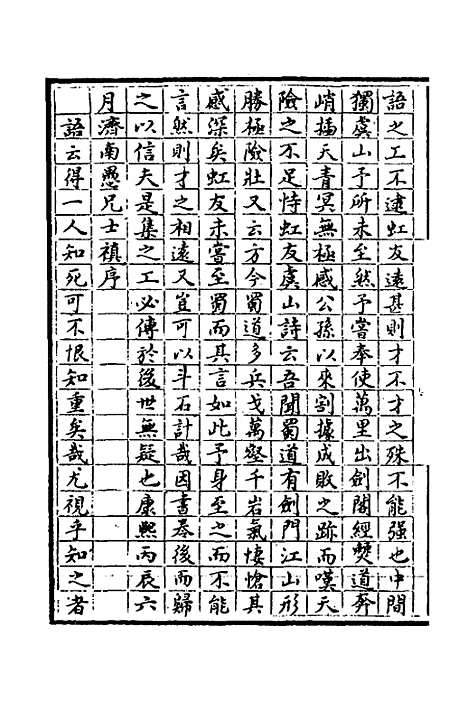 語之工不逮虹友遠甚則才不才之殊不能强也中間
獨虞山予所未至然予嘗奉使萬里出劍閣經僰道奔
峭插天青冥無極感公孫以來割據成敗之跡而嘆天
險之不足恃虹友虞山詩云吾聞蜀道有劍門江山形
勝極險壯又云方今蜀道多兵戈萬壑千岩氣悽愴其
感深矣虹友未嘗至蜀而其言如此予身至之而不能
言然則才之相遠又豈可以斗石計哉因書卷後而歸
之以信夫是集之工必傳於後世無疑也康熙丙辰六
月濟南愚兄士禛序
語云得一人知死可不恨知重矣哉尤視乎知之者